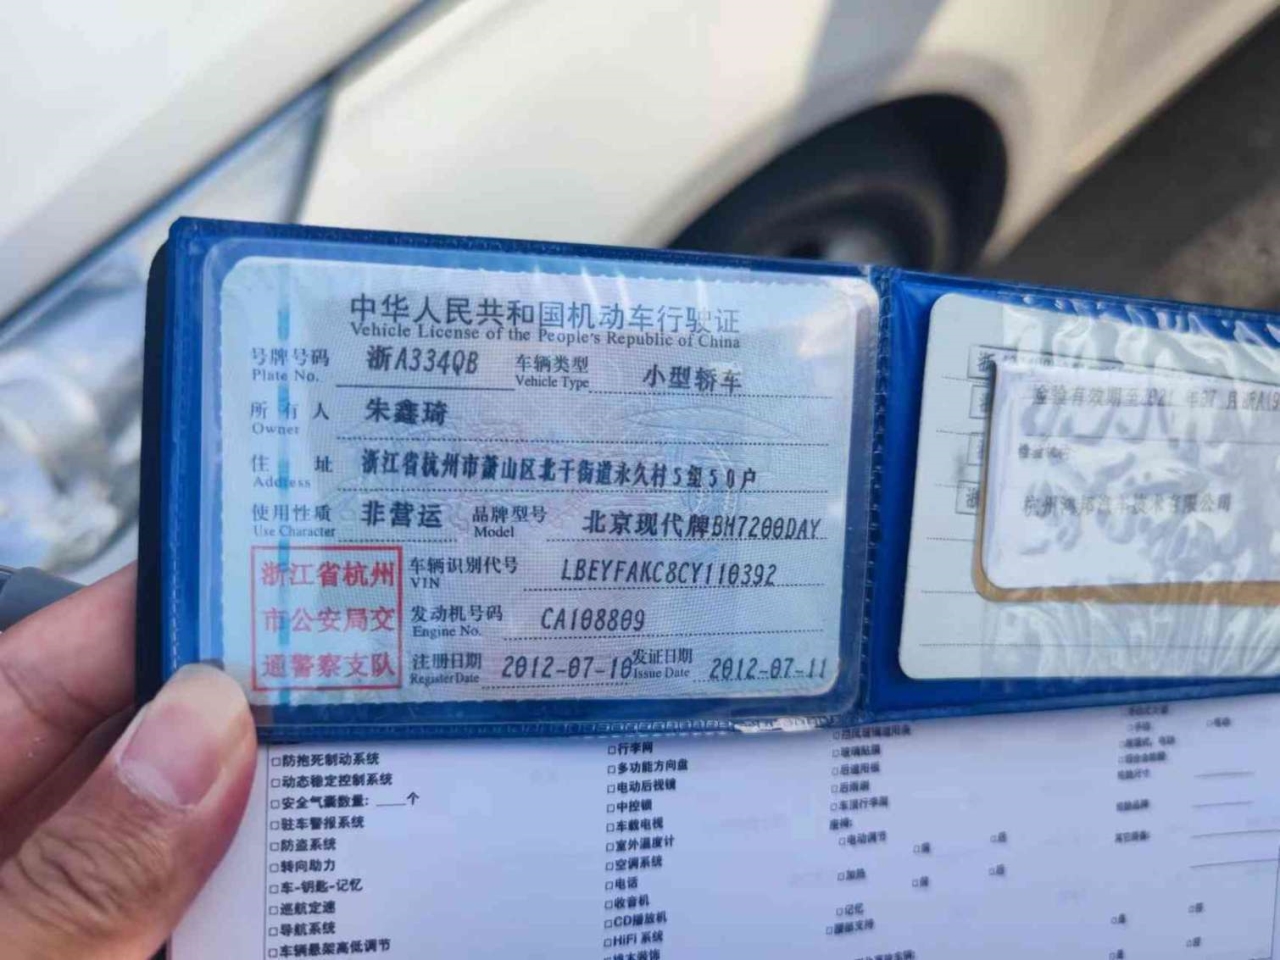 中华人民共和国机动车行驶证
Vehicle License of the People's Republic of China
号牌号码 浙A334QB 车辆类型 小型轿车
Plate No. Vehicle Type
所有人 朱鑫琦
Owner
住址 浙江省杭州市萧山区北干街道永久村5组50户
Address
使用性质 非营运 品牌型号 北京现代牌BH7200DAY
Use Character Model
浙江省杭州
市公安局交
通警察支队
车辆识别代号 LBEYFAKC8CY110392
VIN
发动机号码 CA108809
Engine No.
注册日期 2012-07-10 发证日期 2012-07-11
Register Date Issue Date
检验有效期至
□防抱死制动系统
□动态稳定控制系统
□安全气囊数量:____个
□驻车警报系统
□防盗系统
□转向助力
□车-钥匙-记忆
□巡航定速
□导航系统
□车辆悬架高低调节
□行李网
□多功能方向盘
□电动后视镜
□中控锁
□车载电视
□室外温度计
□空调系统
□电话
□收音机
□CD播放机
□HiFi 系统
□玻璃贴膜
□后雨刷
□车顶行李架
座椅:
□电动调节
□加热
□记忆
□腰部支持